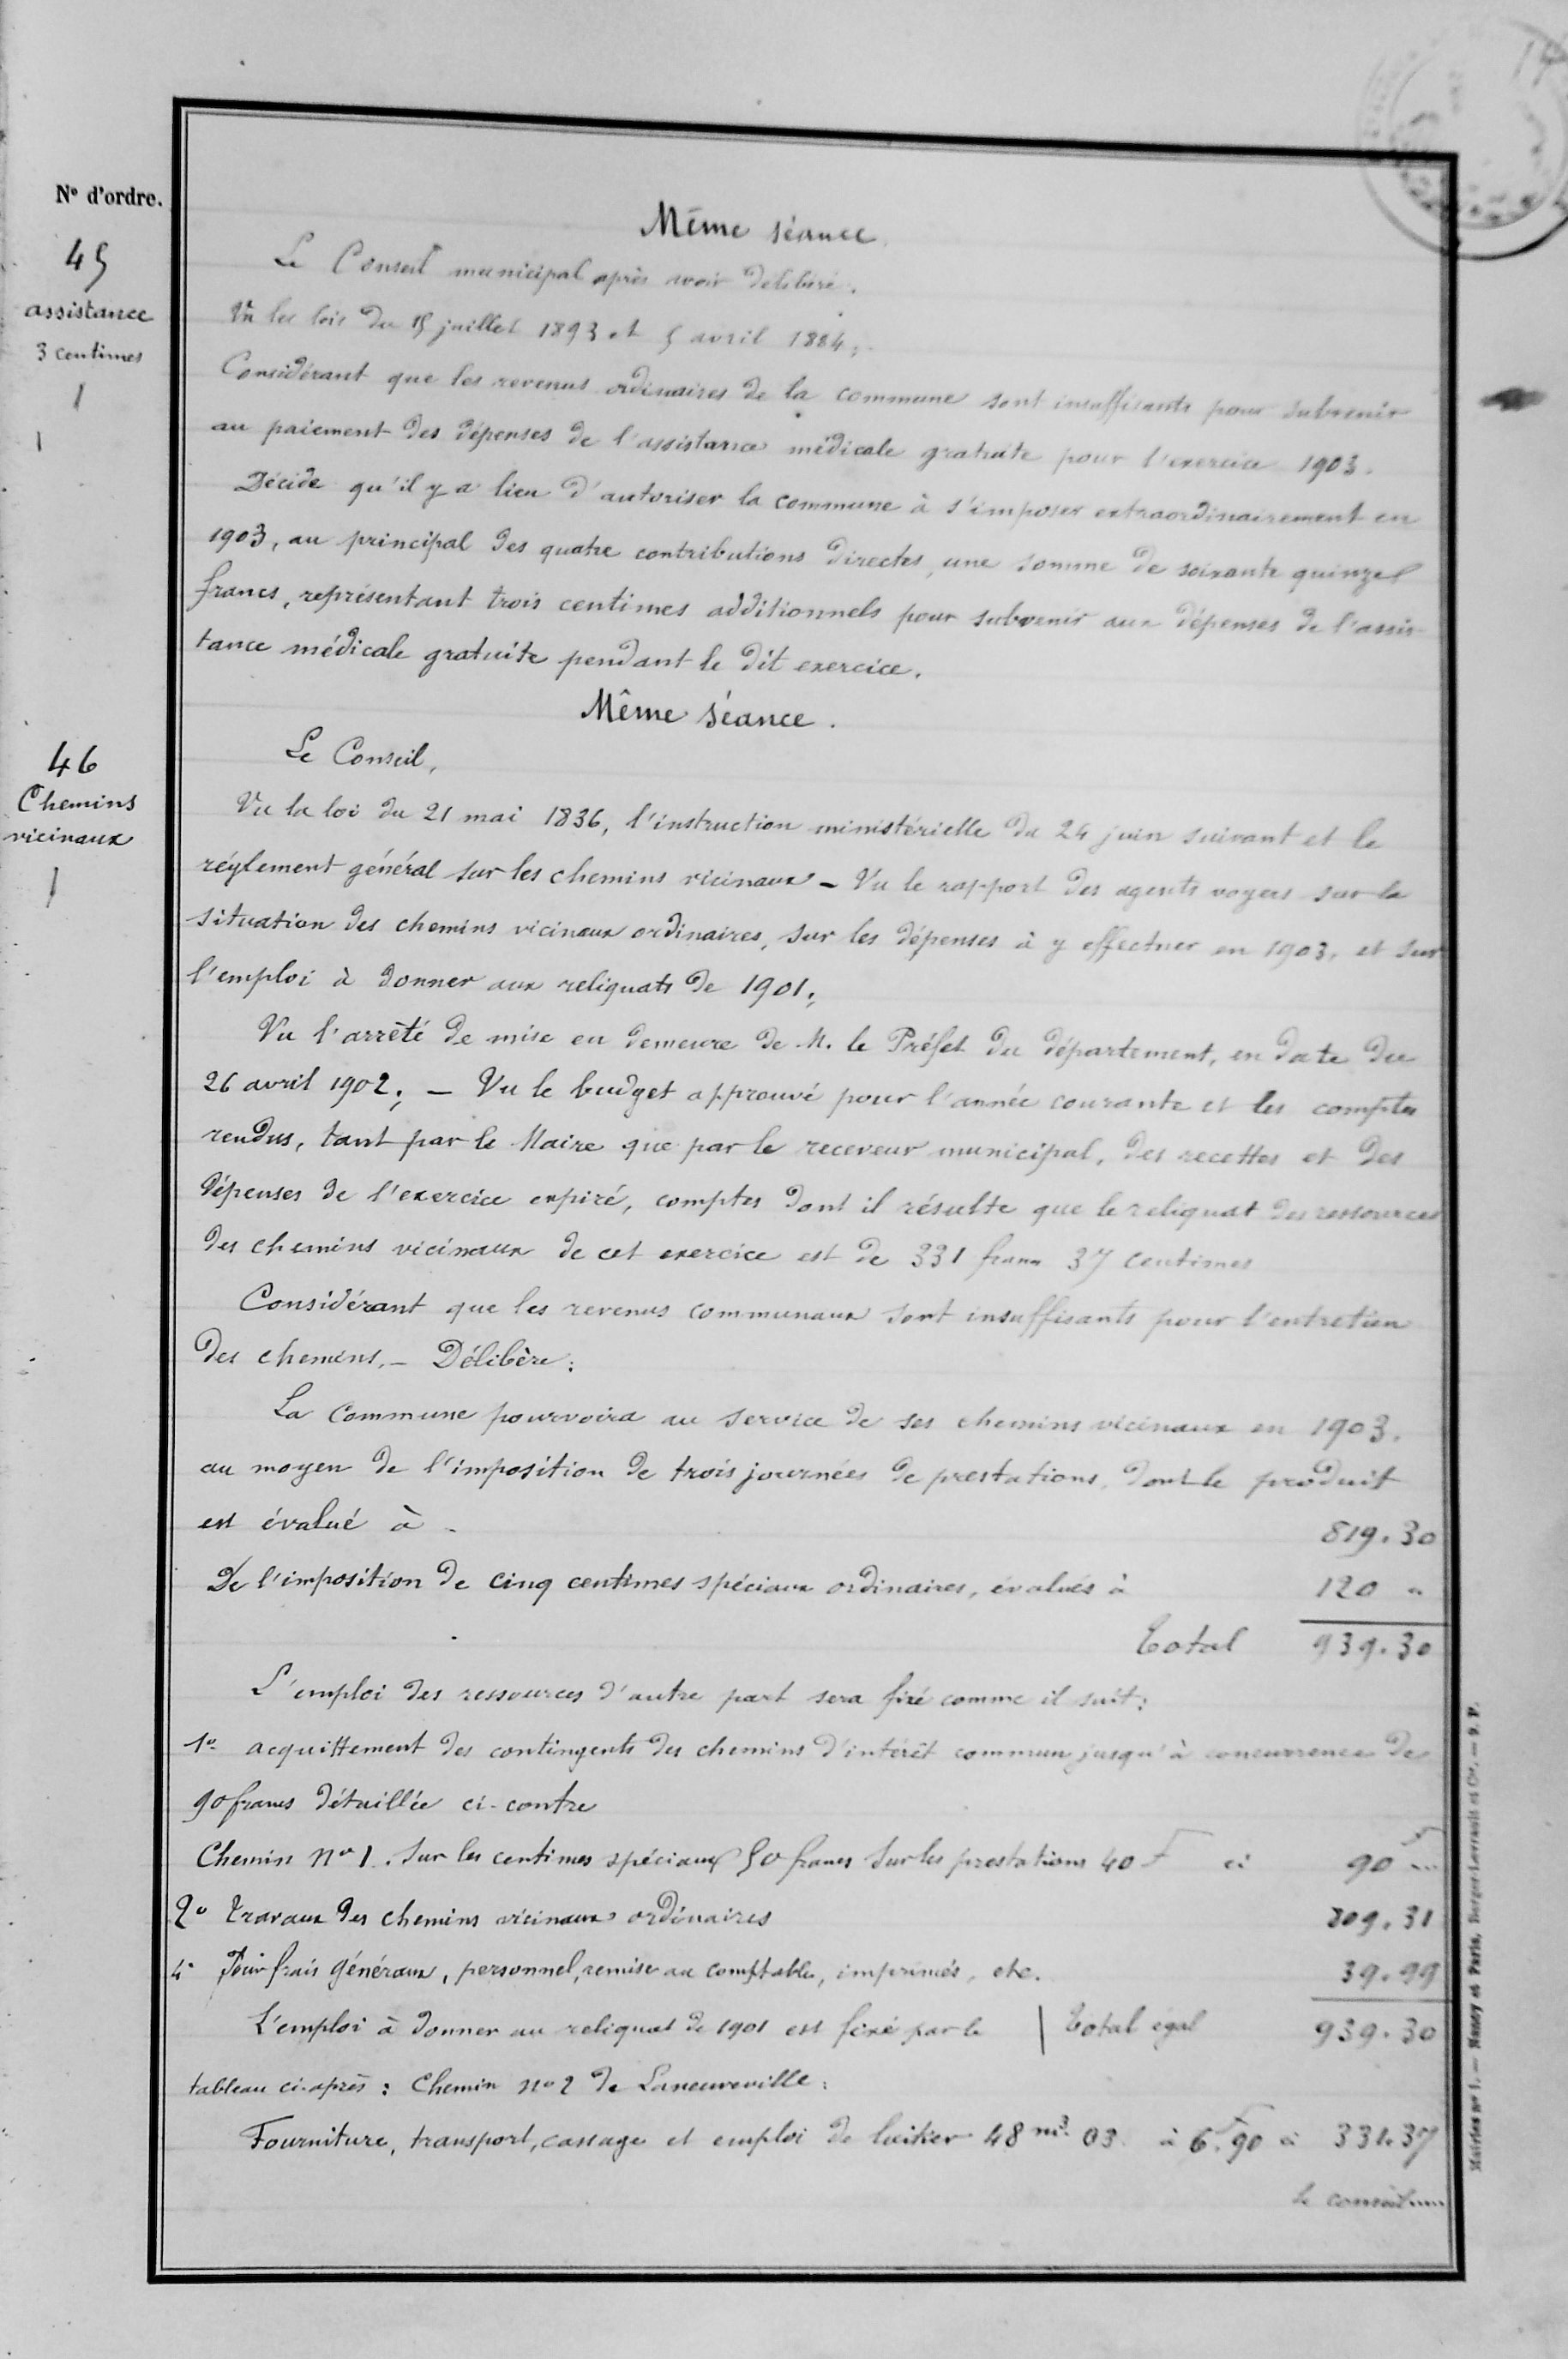 N° d'ordre.
45
assistance
3 centimes
Même séance.
Le Conseil municipal après avoir délibéré.
Vu les lois du 15 juillet 1893 et 5 avril 1884;
Considérant que les revenus ordinaires de la commune sont insuffisants pour subvenir
au paiement des dépenses de l'assistance médicale gratuite pour l'exercice 1903.
Décide qu'il y a lieu d'autoriser la commune à s'imposer extraordinairement en
1903, au principal des quatre contributions directes, une somme de soixante quinze
francs, représentant trois centimes additionnels pour subvenir aux dépenses de l'assis-
tance médicale gratuite pendant le dit exercice.
Même séance.
46
Chemins
vicinaux
Le Conseil,
Vu la loi du 21 mai 1836, l'instruction ministérielle du 24 juin suivant et le
réglement général sur les chemins vicinaux - Vu le rapport des agents voyers sur la
situation des chemins vicinaux ordinaires, sur les dépenses à y effectuer en 1903, et sur
l'emploi à donner aux reliquats de 1901;
Vu l'arrêté de mise en demeure de M. le Préfet du département, en date du
26 avril 1902; - Vu le budget approuvé pour l'année courante et les comptes
rendus, tant par le Maire que par le receveur municipal, des recettes et des
dépenses de l'exercice expiré, comptes dont il résulte que le reliquat des ressources
des chemins vicinaux de cet exercice est de 331 francs 37 centimes
Considérant que les revenus communaux sont insuffisants pour l'entretien
des chemins. - Délibère:
La Commune pourvoira au service de ses chemins vicinaux en 1903.
au moyen de l'imposition de trois journées de prestations, dont le produit
est évalué à - 819.30
De l'imposition de cinq centimes spéciaux ordinaires, évalués à 120 "
Total 939.30
L'emploi des ressources d'autre part sera fixé comme il suit:
1° acquittement des contingents des chemins d'intérêt commun jusqu'à concurrence de
90 francs détaillée ci-contre
Chemin n° 1. Sur les centimes spéciaux 50 francs Sur les prestations 40 F ci 90 F "
2° Travaux des chemins vicinaux ordinaires 809.31
4° Pour frais généraux, personnel, remise au comptable, imprimés, etc. 39.99
L'emploi à donner au reliquat de 1901 est fixé par le | Total égal 939.30
tableau ci-après: Chemin n° 2 de Laneuveville:
Fourniture, transport, cassage et emploi de laitier 48 m3 03 à 6F.90 ci 331.37
Le conseil
Mairies n° 1. — Nancy et Paris, Berger-Levrault et Cie. — 9. P.